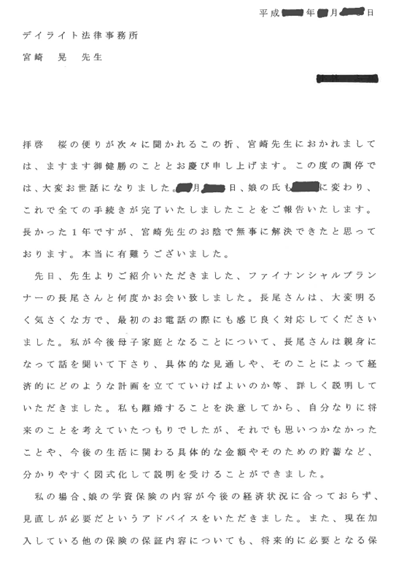 平成　年　月　日
デイライト法律事務所
宮崎　晃　先生
拝啓　桜の便りが次々に聞かれるこの折、宮崎先生におかれまして
は、ますます御健勝のこととお慶び申し上げます。この度の調停で
は、大変お世話になりました。　月　日、娘の氏も　に変わり、
これで全ての手続きが完了いたしましたことをご報告いたします。
長かった1年ですが、宮崎先生のお陰で無事に解決できたと思って
おります。本当に有難うございました。
先日、先生よりご紹介いただきました、ファイナンシャルプラン
ナーの長尾さんと何度かお会い致しました。長尾さんは、大変明る
く気さくな方で、最初のお電話の際にも感じ良く対応してください
ました。私が今後母子家庭となることについて、長尾さんは親身に
なって話を聞いて下さり、具体的な見通しや、そのことによって経
済的にどのような計画を立てていけばよいのか等、詳しく説明して
いただきました。私も離婚することを決意してから、自分なりに将
来のことを考えていたつもりでしたが、それでも思いつかなかった
ことや、今後の生活に関わる具体的な金額やそのための貯蓄など、
分かりやすく図式化して説明を受けることができました。
私の場合、娘の学資保険の内容が今後の経済状況に合っておらず、
見直しが必要だというアドバイスをいただきました。また、現在加
入している他の保険の保証内容についても、将来的に必要となる保